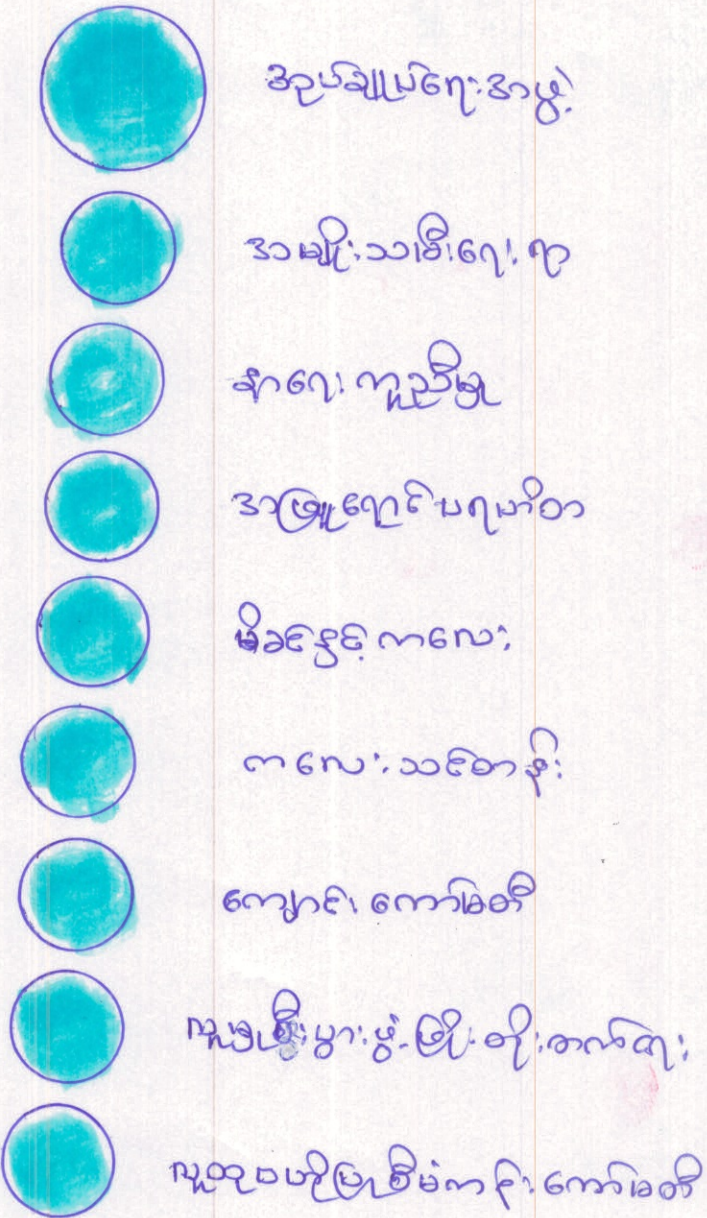 အုပ်ချုပ်ရေးအဖွဲ့
အမျိုးသမီးရေးရာ
နာရေးကူညီမှု
အဖြူရောင်ပရဟိတ
မိခင်နှင့်ကလေး
ကလေးသင်တန်း
ကျောင်းကော်မတီ
လူမှုစီးပွားဖွံ့ဖြိုးတိုးတက်ရေး
လူထုဗဟိုပြုစီမံကိန်းကော်မတီ